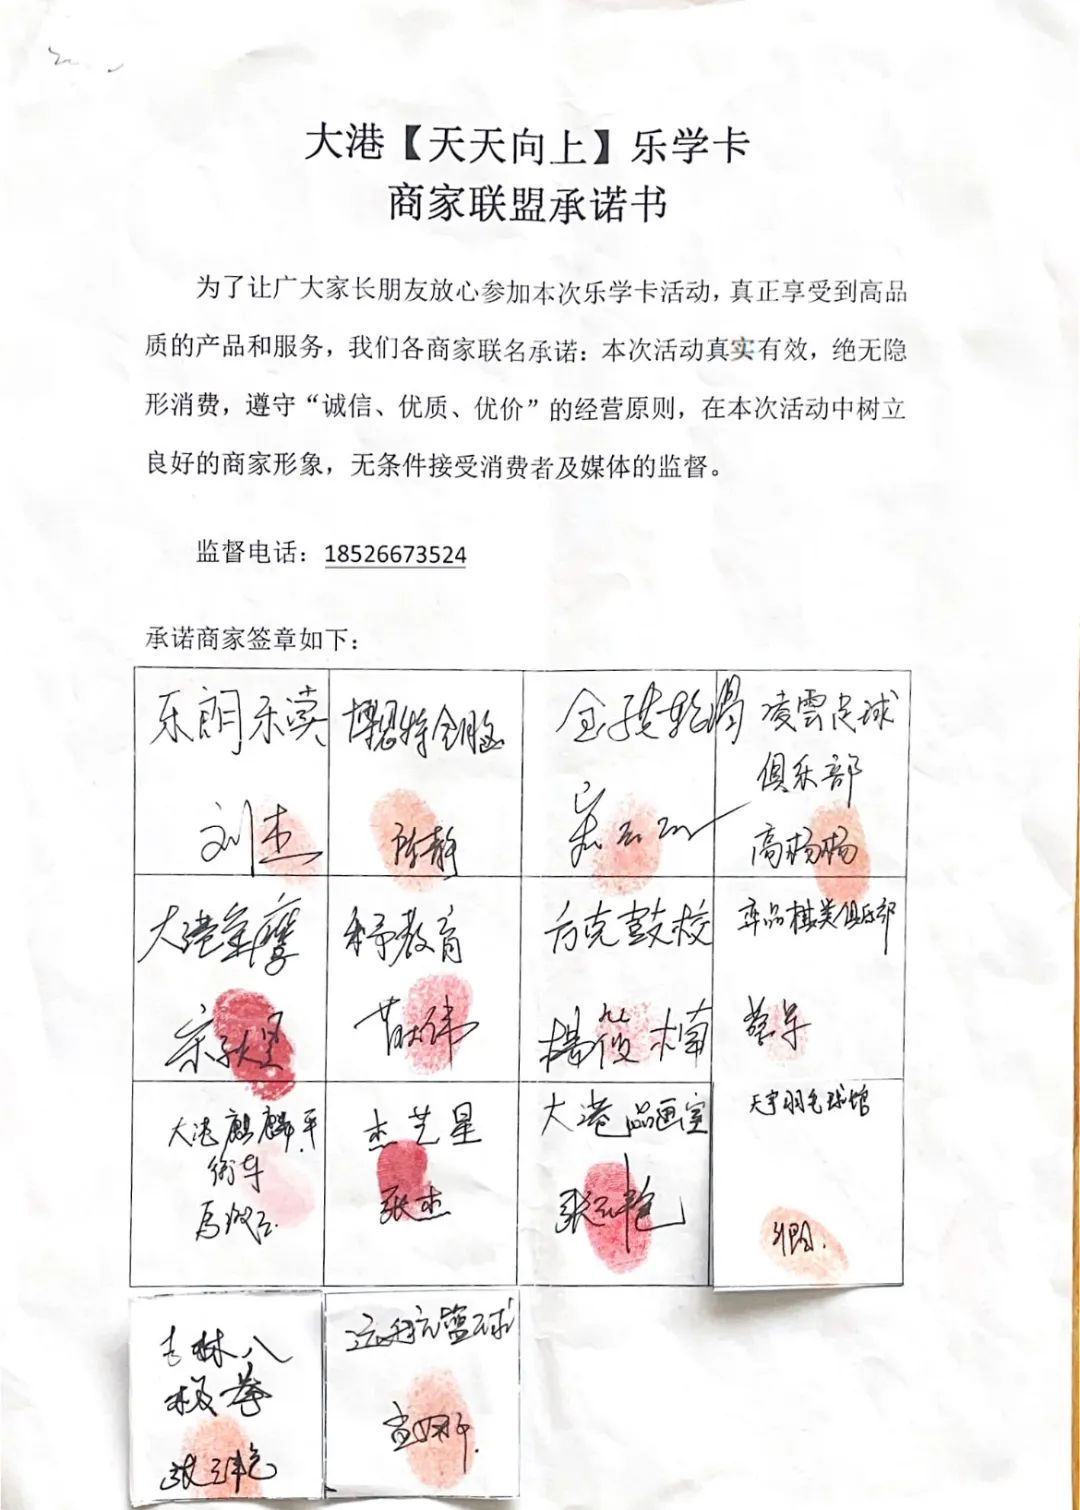 大港【天天向上】乐学卡
商家联盟承诺书
为了让广大家长朋友放心参加本次乐学卡活动，真正享受到高品
质的产品和服务，我们各商家联名承诺：本次活动真实有效，绝无隐
形消费，遵守“诚信、优质、优价”的经营原则，在本次活动中树立
良好的商家形象，无条件接受消费者及媒体的监督。
监督电话：18526673524
承诺商家签章如下：
乐朗乐读
刘杰
博思特全脑
陈静
凌雲足球
俱乐部
高杨杨
大港
禾予教育
方克鼓校
楊筱楠
弈品棋类俱乐部
大港麒麟
杰艺星
张杰
大港品画室
张艳
天宇羽毛球馆
吉林八
极拳
远航篮球